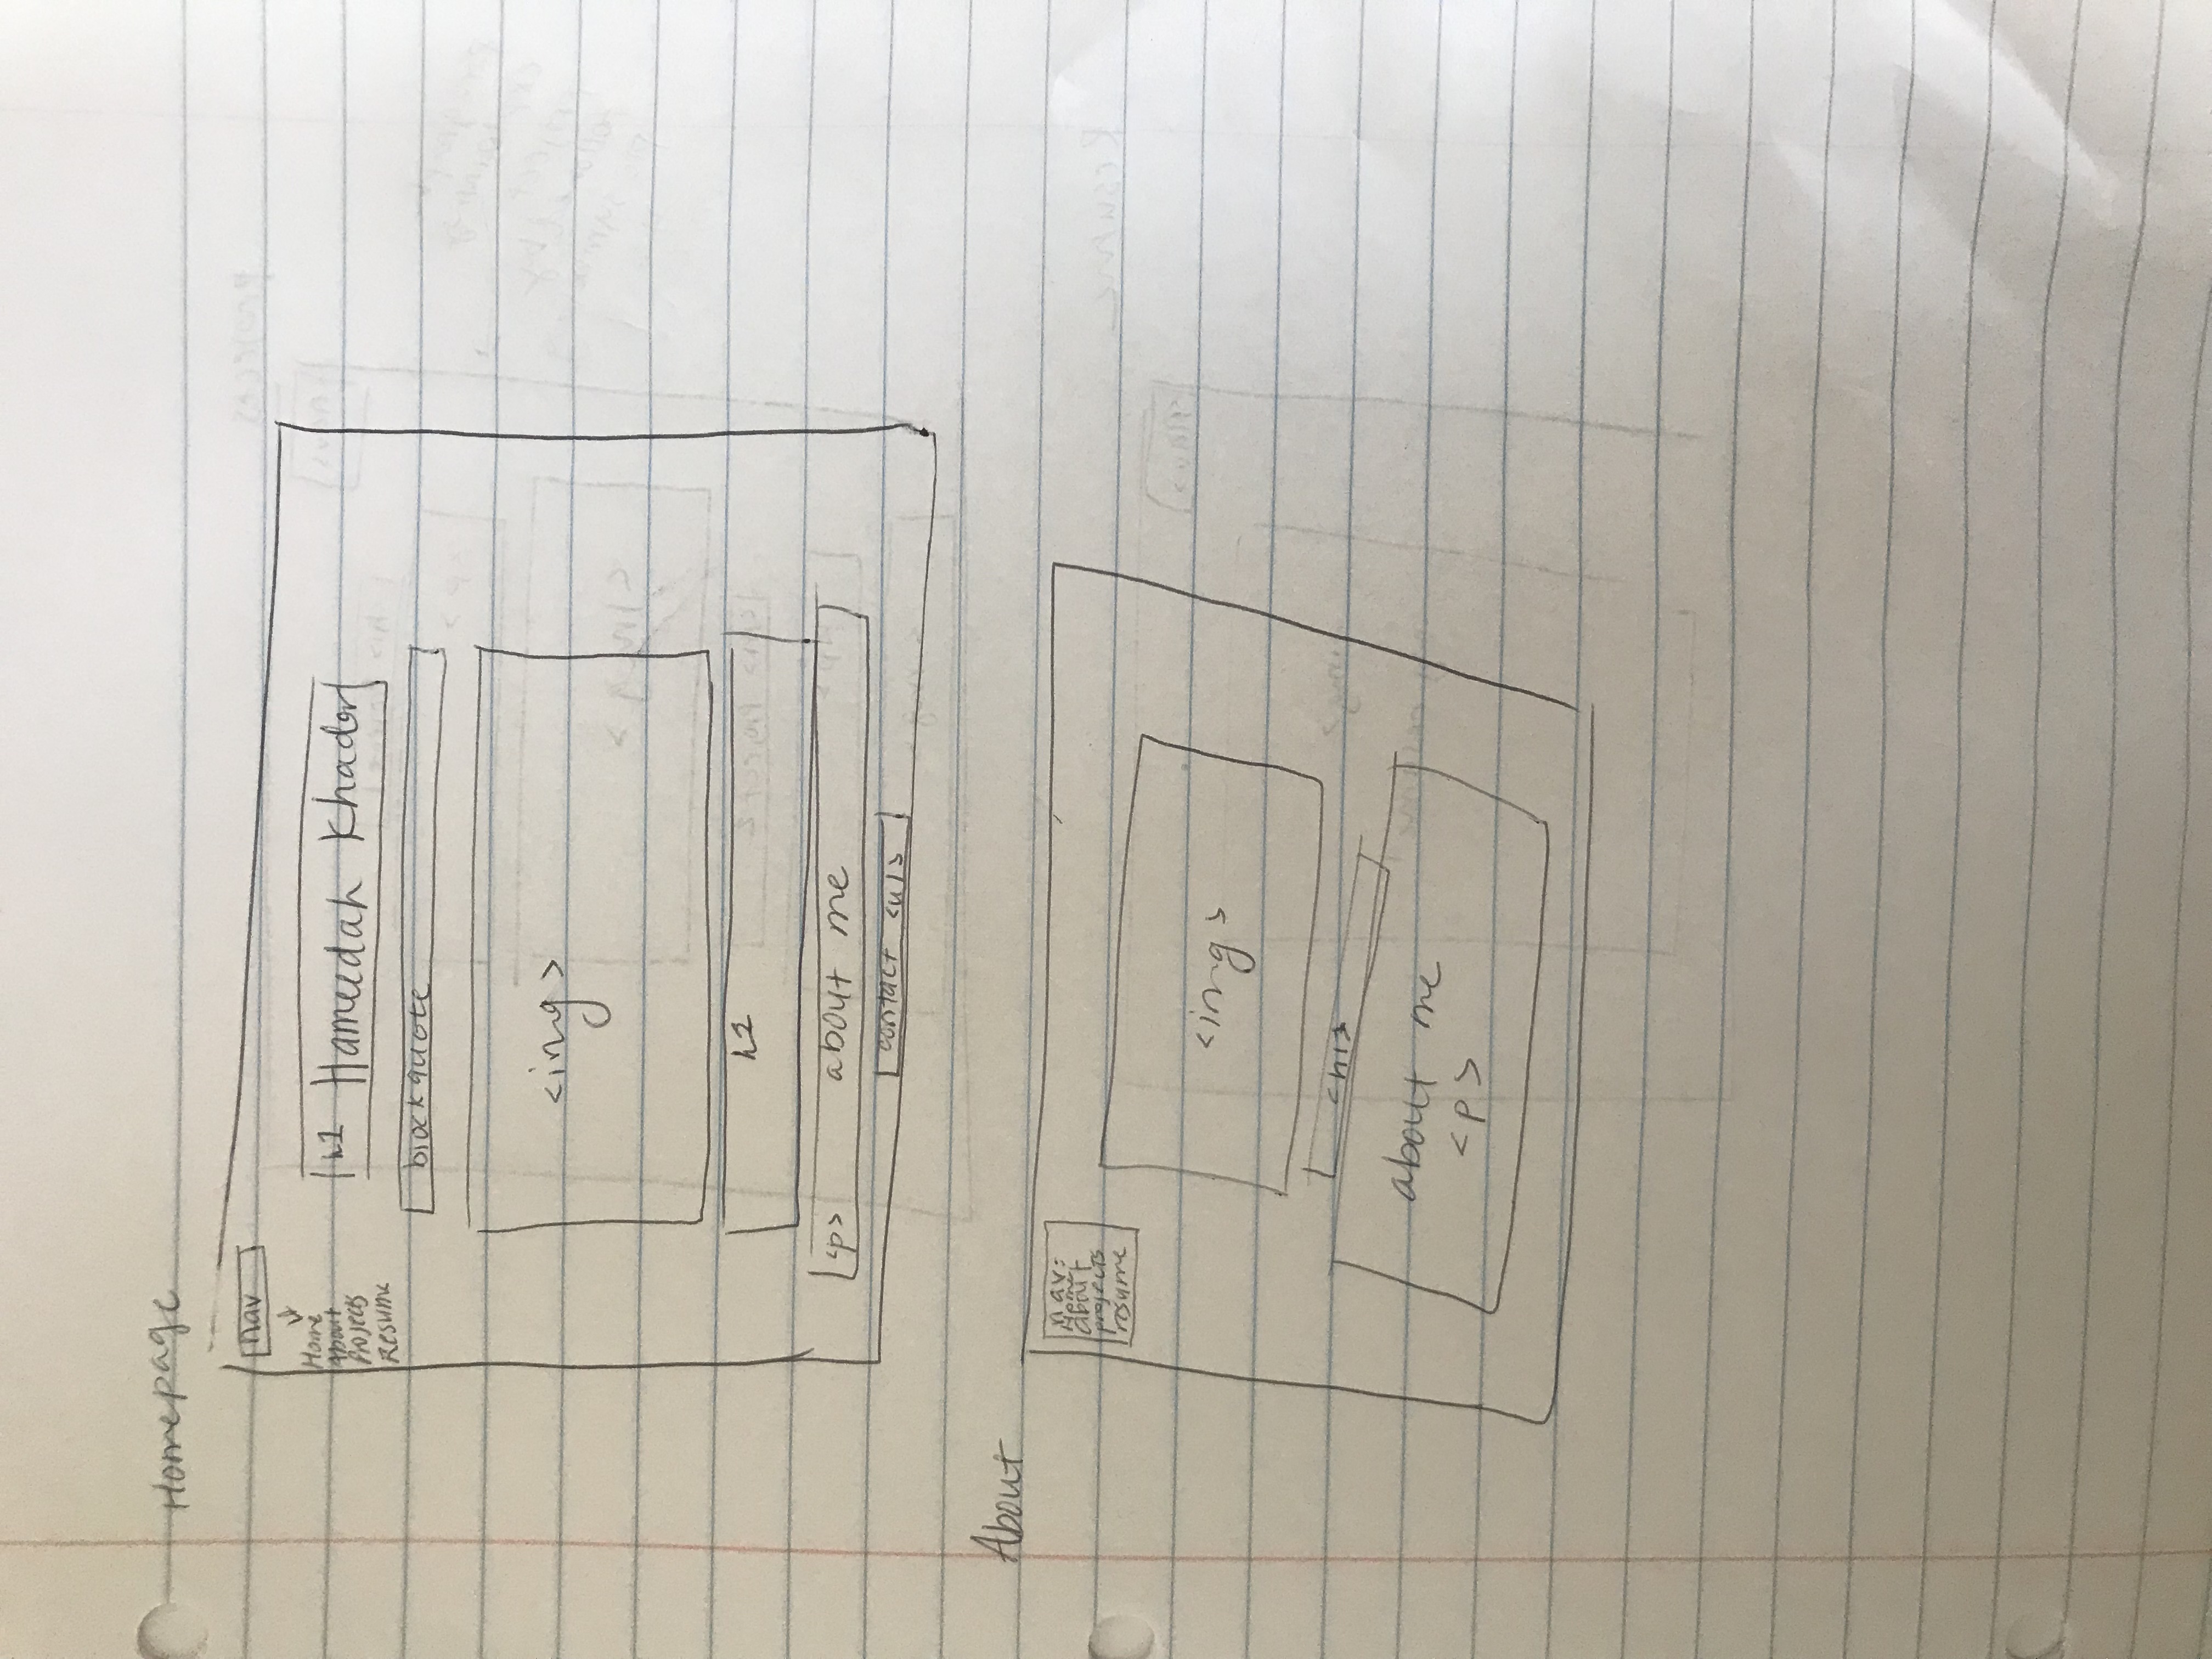 Homepage
nav
Home
About
Projects
Resume
h1 Hameedah Khader
blockquote
<img>
h2
<p> about me
contact <ul>
About
nav:
Home
about
projects
resume
<img>
<h1>
about me
<p>